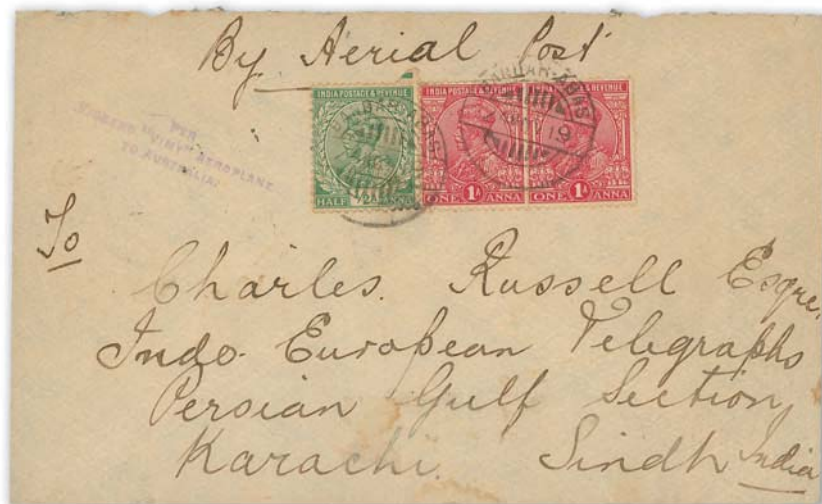 By Aerial Post
PER
VICKERS "VIMY" AEROPLANE
TO AUSTRALIA.
INDIA POSTAGE & REVENUE
HALF ½A ANNA
INDIA POSTAGE & REVENUE
ONE 1A ANNA
ONE 1A ANNA
BANDAR-ABAS
19
To
Charles. Russell Esqre.
Indo. European Telegraphs
Persian Gulf Section
Karachi. Sindh India